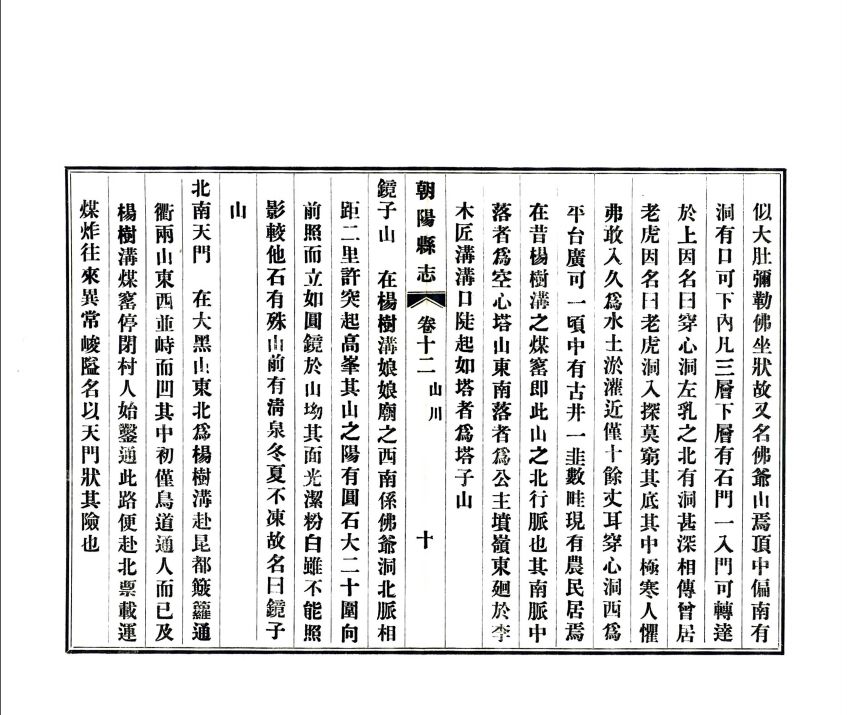 似大肚彌勒佛坐狀故又名佛爺山焉頂中偏南有
洞有口可下內凡三層下層有石門一入門可轉達
於上因名曰穿心洞左乳之北有洞甚深相傳曾居
老虎因名曰老虎洞入探莫窮其底其中極寒人懼
弗敢入久爲水土淤灌近僅十餘丈耳穿心洞西爲
平台廣可一頃中有古井一韭數畦現有農民居焉
在昔楊樹溝之煤窰卽此山之北行脈也其南脈中
落者爲空心塔山東南落者爲公主墳嶺東廻於李
木匠溝溝口陡起如塔者爲塔子山
朝陽縣志 卷十二 山川 十
鏡子山 在楊樹溝娘娘廟之西南係佛爺洞北脈相
距二里許突起高峯其山之陽有圓石大二十圍向
前照而立如圓鏡於山坳其面光潔粉白雖不能照
影較他石有殊山前有淸泉冬夏不凍故名曰鏡子
山
北南天門 在大黑山東北爲楊樹溝赴昆都簸籮通
衢兩山東西並峙而凹其中初僅鳥道通人而已及
楊樹溝煤窰停閉村人始鑿通此路便赴北票載運
煤炸往來異常峻隘名以天門狀其險也